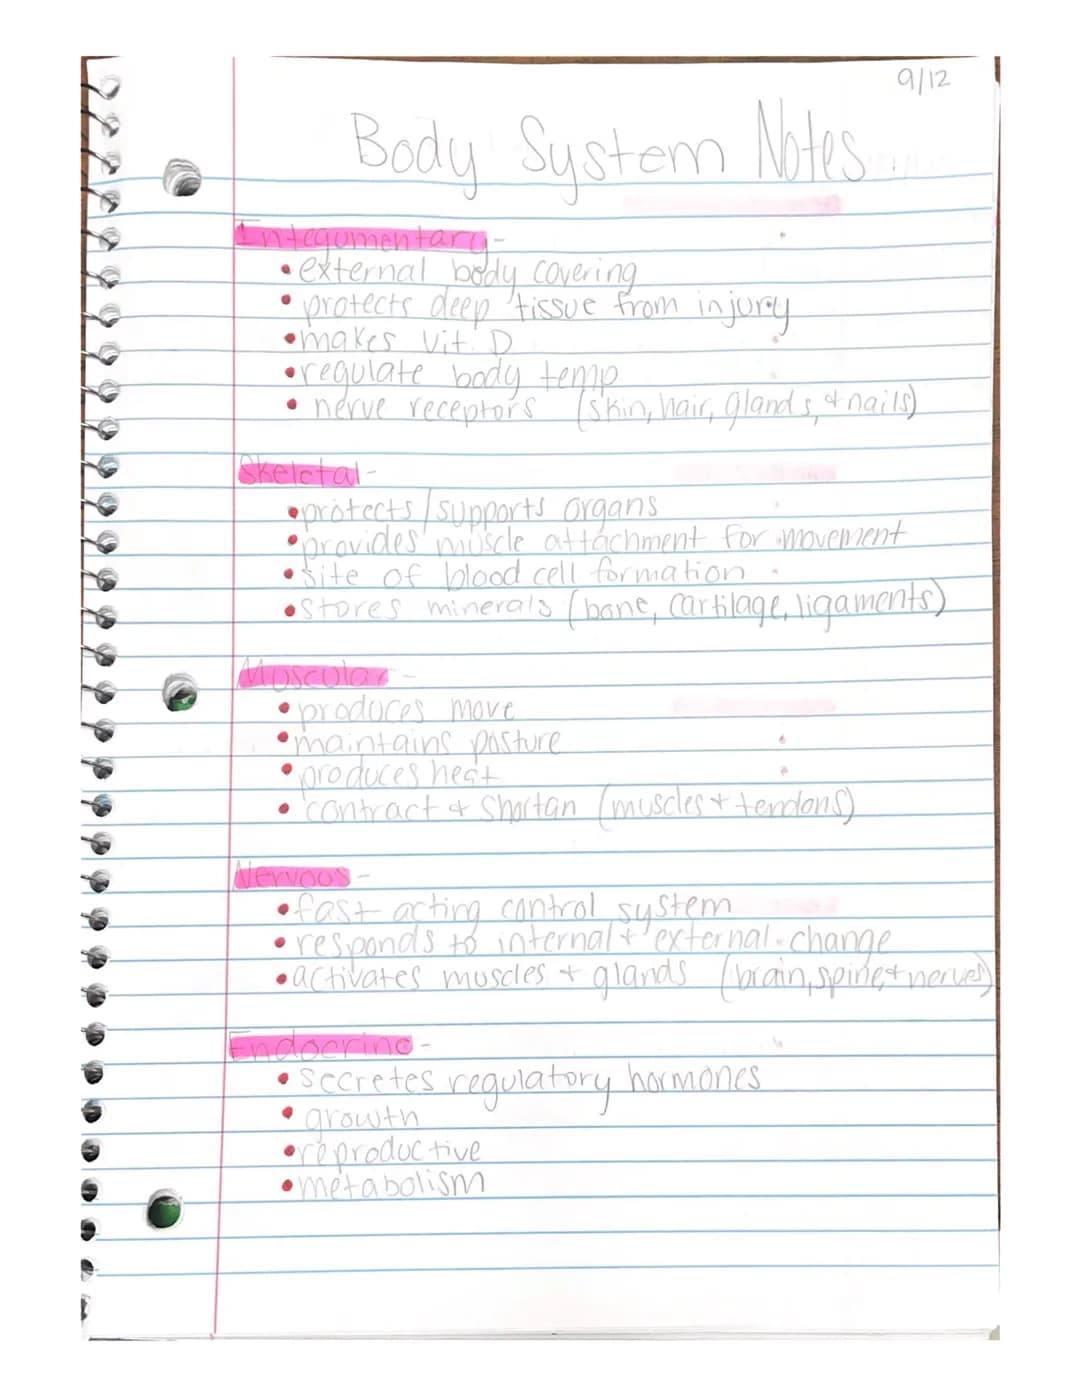 9/12
Body System Notes
Integumentary-
• external body covering
• protects deep tissue from injury
• makes Vit. D
• regulate body temp
• nerve receptors (skin, hair, glands, + nails)
Skeletal-
• protects/supports organs
• provides muscle attachment for movement
• site of blood cell formation
• stores minerals (bone, cartilage, ligaments)
Muscular-
• produces move
• maintains posture
• produces heat
• contract + shortan (muscles + tendons)
Nervous-
• fast acting control system
• responds to internal + external change
• activates muscles + glands (brain, spine, + nerves)
Endocrine-
• secretes regulatory hormones
• growth
• reproductive
• metabolism